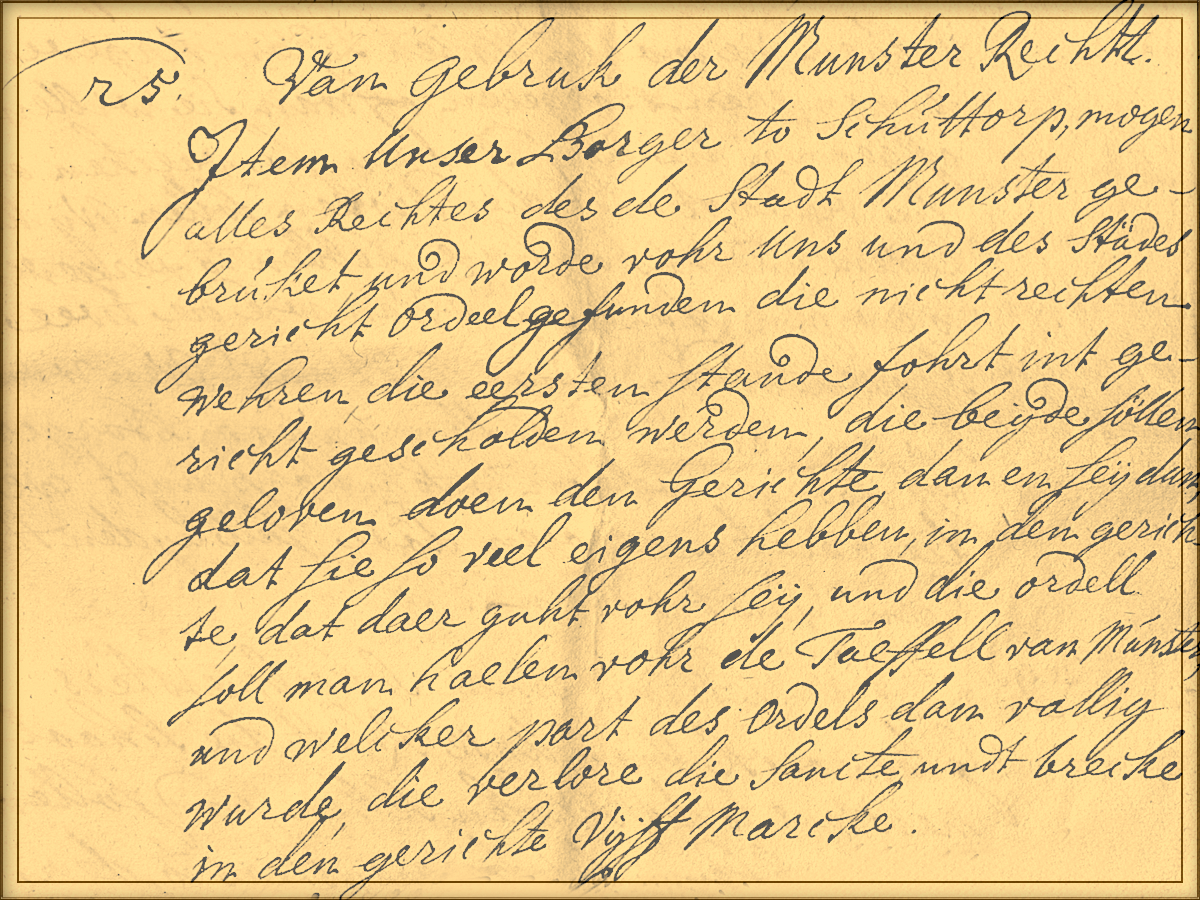 25. Van gebruk der Munster Rechtt.
Item Unser Borger to Schúttorp, mogen
alles Rechtes des de Stadt Munster ge-
brúket und worde vohr Uns und des Städes
gericht Ordeel gefunden die nicht rechten
wehren die eersten stande fohrt int ge-
richt gescholden werden, die beyde söllen
geloven doen den Gerichte, dan en seij dan,
dat sie so veel eigens hebben, in den gerich-
te, dat daer guht vohr seij, und die ordell
soll man haelen vohr de Taeffell van Múnster,
und welcker part des Ordels dan vallig
wurde, die verlore die sancte undt brecke
in den gerichte Vijff Marcke.